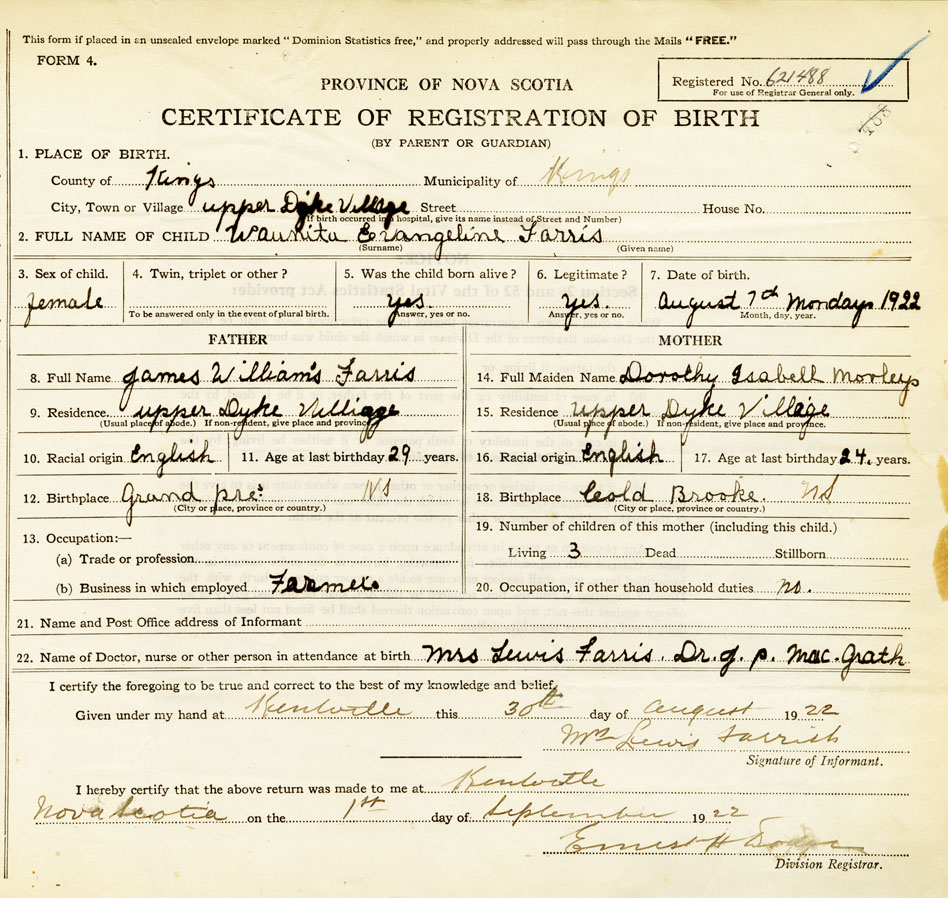 This form if placed in an unsealed envelope marked "Dominion Statistics free," and properly addressed will pass through the Mails "FREE."
FORM 4.
Registered No. 621488
For use of Registrar General only.
PROVINCE OF NOVA SCOTIA
CERTIFICATE OF REGISTRATION OF BIRTH
(BY PARENT OR GUARDIAN)
1. PLACE OF BIRTH.
County of Kings Municipality of Kings
City, Town or Village upper Dyke Village Street House No.
(If birth occurred in a hospital, give its name instead of Street and Number)
2. FULL NAME OF CHILD Waunita Evangeline Farris
(Surname) (Given name)
3. Sex of child. 4. Twin, triplet or other? 5. Was the child born alive? 6. Legitimate? 7. Date of birth.
female yes. yes. August 7th Mondays 1922
To be answered only in the event of plural birth. Answer, yes or no. Answer, yes or no. Month, day, year.
FATHER
8. Full Name James William's Farris
9. Residence upper Dyke Villigge
(Usual place of abode.) If non-resident, give place and province
10. Racial origin English 11. Age at last birthday 29 years.
12. Birthplace Grand pre: NS
(City or place, province or country.)
13. Occupation:—
(a) Trade or profession
(b) Business in which employed Farmer
MOTHER
14. Full Maiden Name Dorothy Isabell Morleys
15. Residence upper Dyke Village
(Usual place of abode.) If non-resident, give place and province.
16. Racial origin English 17. Age at last birthday 24. years.
18. Birthplace Cold Brooke. NS
(City or place, province or country.)
19. Number of children of this mother (including this child.)
Living 3 Dead Stillborn
20. Occupation, if other than household duties no.
21. Name and Post Office address of Informant
22. Name of Doctor, nurse or other person in attendance at birth Mrs Lewis Farris. Dr. J. P. Mac. Grath
I certify the foregoing to be true and correct to the best of my knowledge and belief.
Given under my hand at Kentville this 30th day of August 1922
Mrs Lewis Farrish
Signature of Informant.
I hereby certify that the above return was made to me at Kentville
Nova Scotia on the 1st day of September 1922
Ernest H Dodge
Division Registrar.